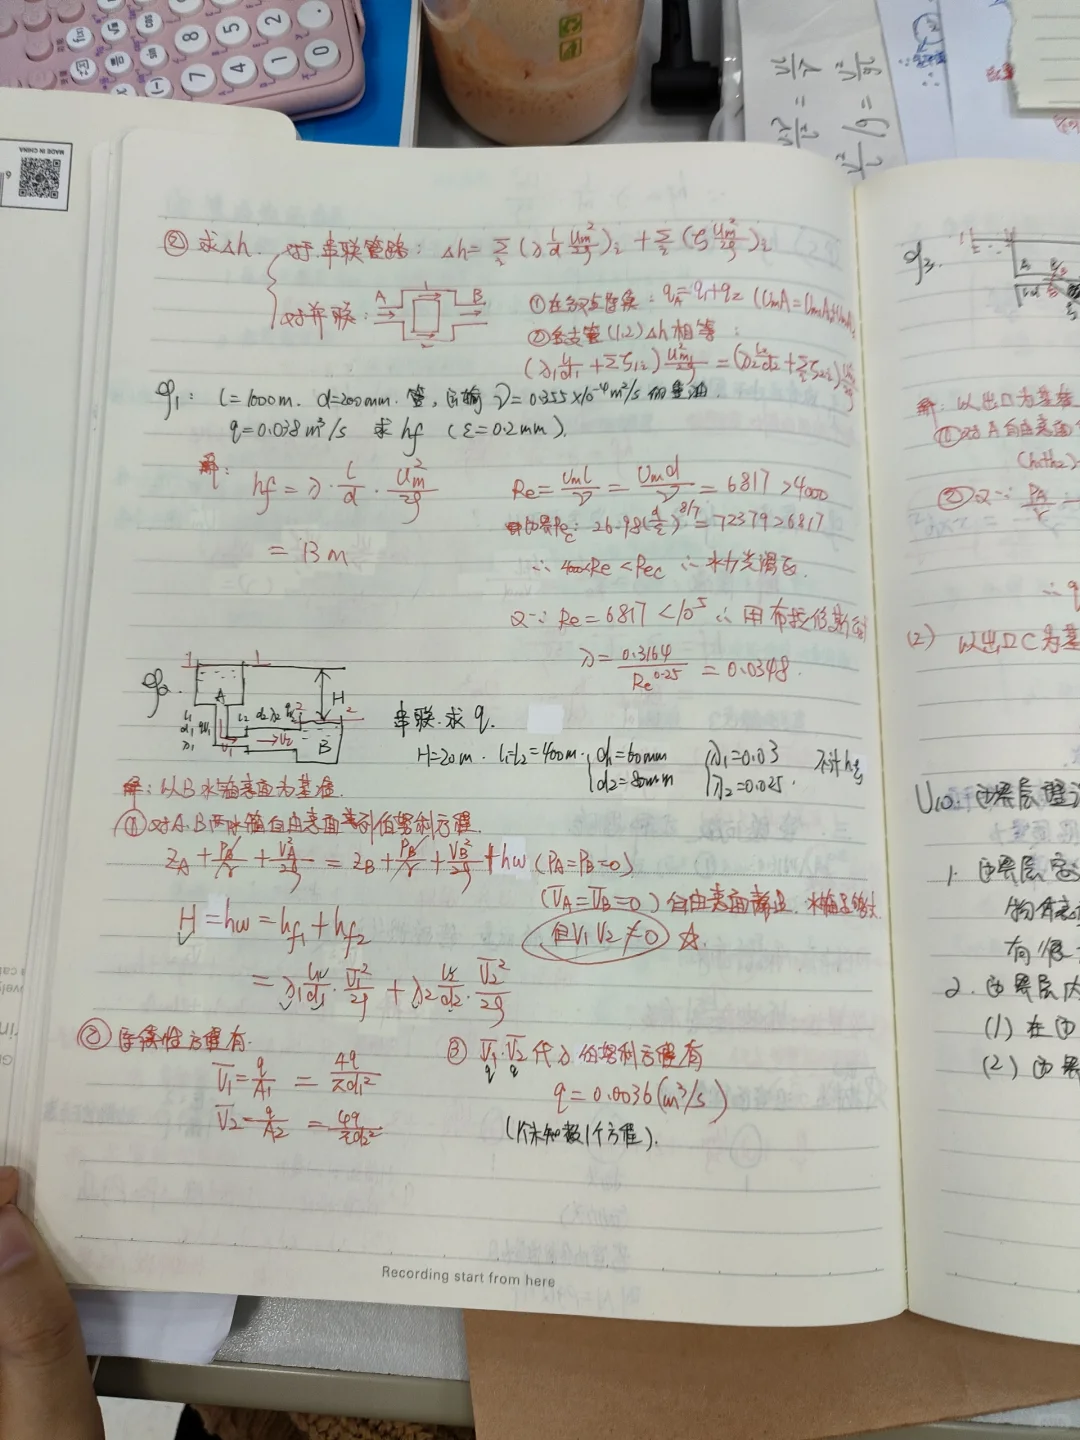 MADE IN CHINA
② 求Δh. 对于串联管路: Δh=Σ(λ l/d Um²/2g)i + Σ(ζ Um²/2g)i
对并联: A B
① 在分叉点质量: qA=q1+q2
② 各支管(1.2) Δh相等:
(λ1 l1/d1 + Σζ1i) Um1²/2g = (λ2 l2/d2 + Σζ2i)
例1: l=1000m. d=200mm. 管, 运输 ν=0.355×10⁻⁴m²/s 的重油.
q=0.038m³/s 求 hf (ε=0.2mm).
解: hf = λ · l/d · Um²/2g
= 13m
Re = Uml/ν = Umd/ν = 6817 > 4000
边界Rec: 26.98(d/ε)^8/7 = 72379 > 6817
∴ 4000<Re<Rec ∴ 水力光滑区.
又∵ Re=6817 < 10⁵ ∴ 用布拉修斯
λ = 0.3164/Re^0.25 = 0.0348.
例2.
1 1
A H 2
l1 d1 λ1 V1 l2 d2 λ2 V2 B
串联. 求 q.
H=20m. l1=l2=400m. d1=60mm λ1=0.03 不计hξ
d2=80mm λ2=0.025.
解: 以B水箱表面为基准.
① 对A.B两水箱自由表面列伯努利方程.
ZA + PA/r + VA²/2g = ZB + PB/r + VB²/2g + hw (PA=PB=0)
(VA=VB=0) 自由表面静止. 水箱足够大
但V1 V2≠0 ☆.
H = hw = hf1 + hf2
= λ1 l1/d1 · V̄1²/2g + λ2 l2/d2 · V̄2²/2g
② 连续性方程有.
V̄1 = q/A1 = 4q/πd1²
V̄2 = q/A2 = 4q/πd2²
③ V̄1. V̄2 代入伯努利方程有
q q
q = 0.0036 (m³/s)
(1个未知数1个方程).
Recording start from here
例3.
解: 以出口为基准
① 对A自由表面
② 又∵ PA/r
∴ q
(2) 以出口C为基
1. 边界层
物体表
有很
2. 边界层内
(1) 在边
(2) 边界